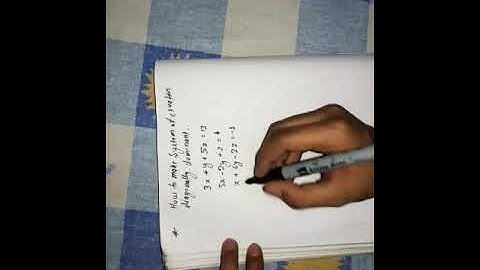 * How to make system of equation
diagonally dominant.
3x + y + 5z = 13
5x - 2y + z = 4
x + 6y - 2z = -1